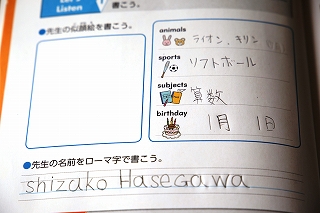 Let's
Listen
●先生の似顔絵を書こう。
animals
ライオン、キリン
sports
ソフトボール
subjects
算数
birthday
1月 1日
●先生の名前をローマ字で書こう。
shizako Hasegawa